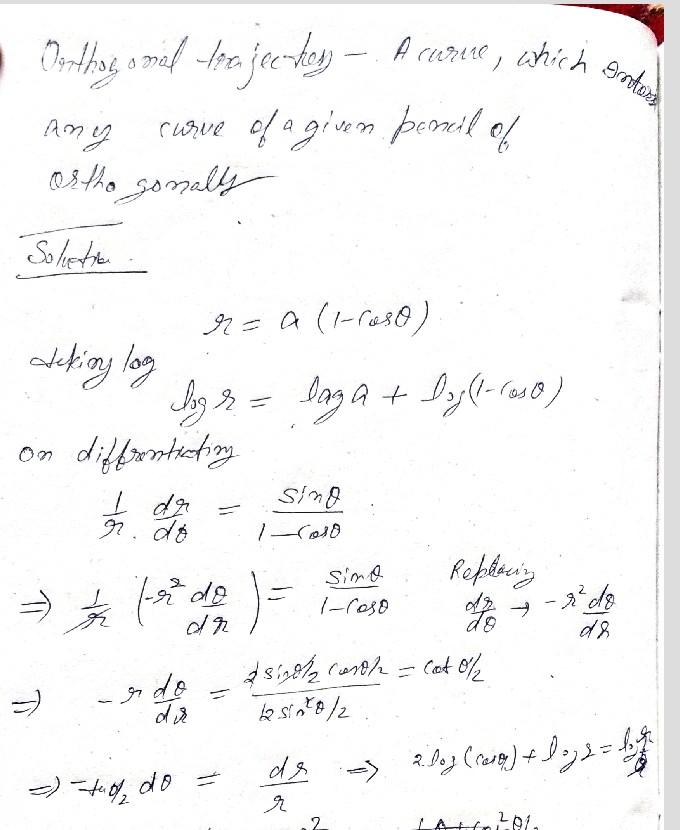 Orthogonal trajectory — A curve, which
any curve of a given pencil of
orthogonally
Solution.
r = a (1-cosθ)
taking log
log r = log a + log(1-cosθ)
on diffrentiating
1/r · dr/dθ = sinθ/(1-cosθ)
⇒ 1/r (-r² dθ/dr) = sinθ/(1-cosθ) Replacing dr/dθ → -r² dθ/dr
⇒ -r dθ/dr = 2 sinθ/2 cosθ/2 / 2 sin²θ/2 = cot θ/2
⇒ -tanθ/2 dθ = dr/r ⇒